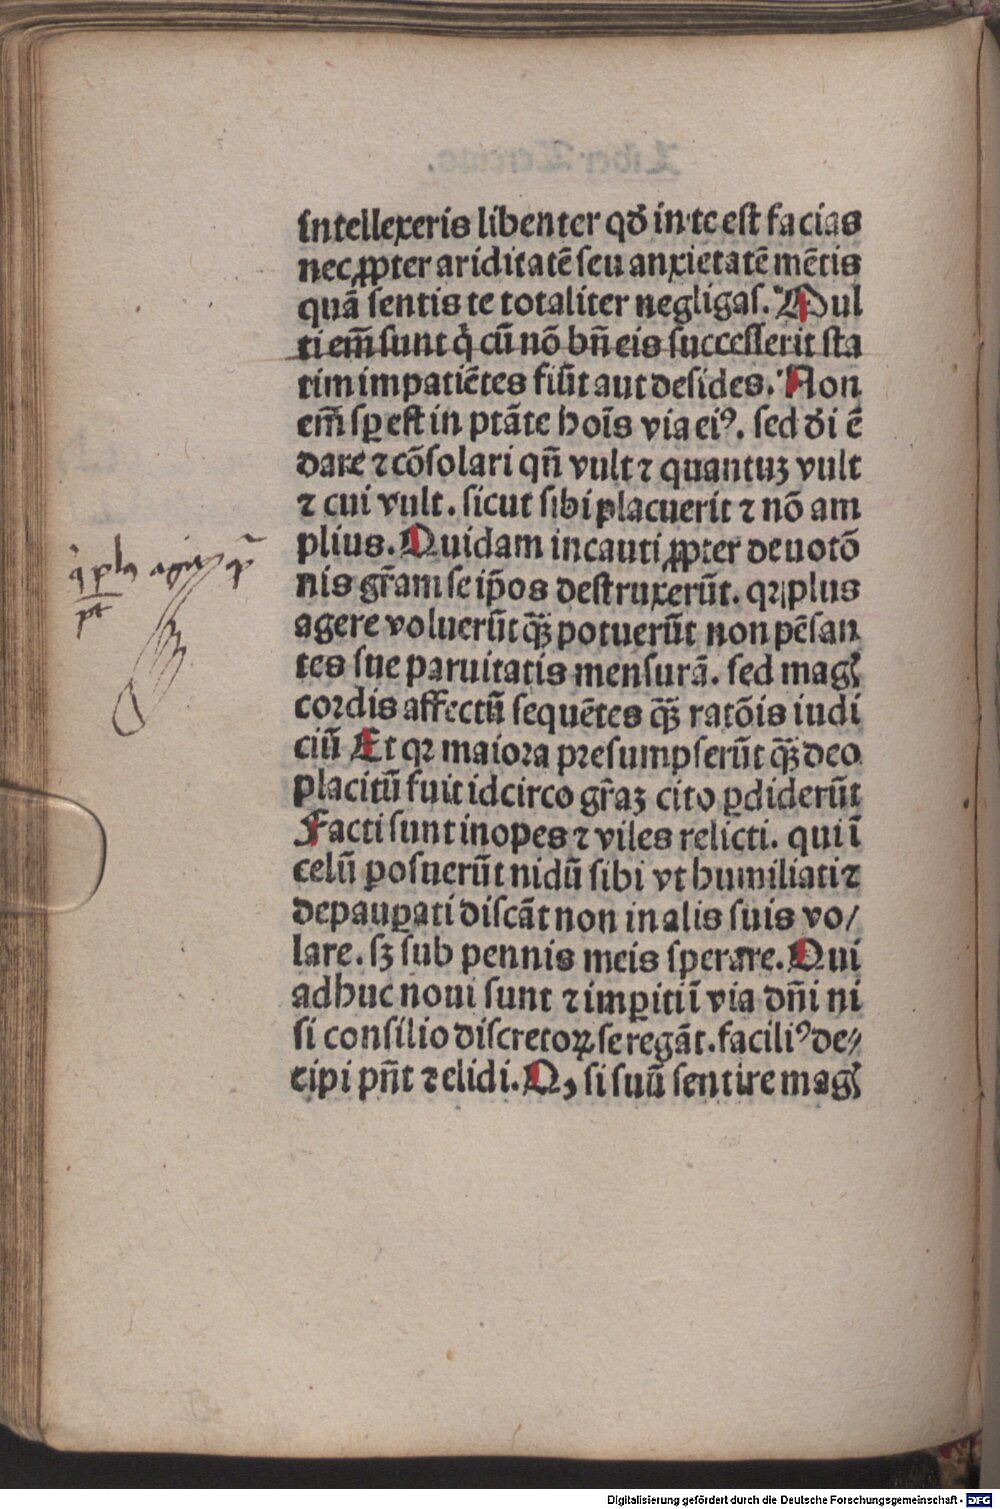 intellexeris libenter qđ in te est facias
nec ꝓpter ariditatē seu anxietatē mētis
quā sentis te totaliter negligas. Mul
ti em̄ sunt q̇ cū nō bn̄ eis successerit sta
tim impatiētes fiūt aut desides. Non
em̄ sꝑ est in ptāte hoīs via eiꝰ. sed di ē
dare ⁊ cōsolari qn̄ vult ⁊ quantuȝ vult
⁊ cui vult. sicut sibi placuerit ⁊ nō am
plius. Quidam incauti ꝓpter deuotō
nis gr̄am se ip̄os destruxerūt. qꝛ plus
agere voluerūt q̄ȝ potuerūt non pēsan
tes sue paruitatis mensurā. sed magꝭ
cordis affectū sequētes q̄ȝ ratōis iudi
ciū Et qꝛ maiora presumpserūt q̄ȝ deo
placitū fuit idcirco gr̄aȝ cito ꝑdiderūt
Facti sunt inopes ⁊ viles relicti. qui ī
celū posuerūt nidū sibi vt humiliati ⁊
depauꝑati discāt non in alis suis vo/
lare. sȝ sub pennis meis sperare. Qui
adhuc noui sunt ⁊ imꝑiti ī via dn̄i ni
si consilio discretoꝝ se regāt. faciliꝰ de⸗
cipi pn̄t ⁊ elidi. Qꝫ si suū sentire magꝭ
Digitalisierung gefördert durch die Deutsche Forschungsgemeinschaft - DFG